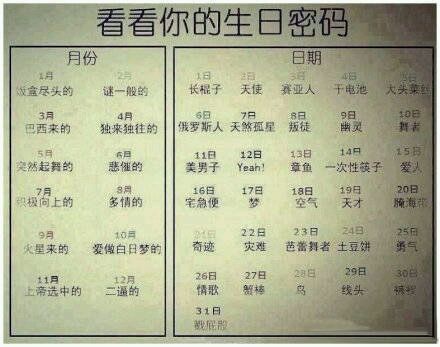 看看你的生日密码
月份
1月 2月
饭盒尽头的 谜一般的
3月 4月
巴西来的 独来独往的
5月 6月
突然起舞的 悲催的
7月 8月
积极向上的 多情的
9月 10月
火星来的 爱做白日梦的
11月 12月
上帝选中的 二逼的
日期
1日 2日 3日 4日 5日
长棍子 天使 赛亚人 干电池 大头菜
6日 7日 8日 9日 10日
俄罗斯人 天煞孤星 叛徒 幽灵 舞者
11日 12日 13日 14日 15日
美男子 Yeah! 章鱼 一次性筷子 爱人
16日 17日 18日 19日 20日
宅急便 梦 空气 天才 腌海
21日 22日 23日 24日 25日
奇迹 灾难 芭蕾舞者 土豆饼 勇气
26日 27日 28日 29日 30日
情歌 蟹棒 鸟 线头 裤衩
31日
戳屁股